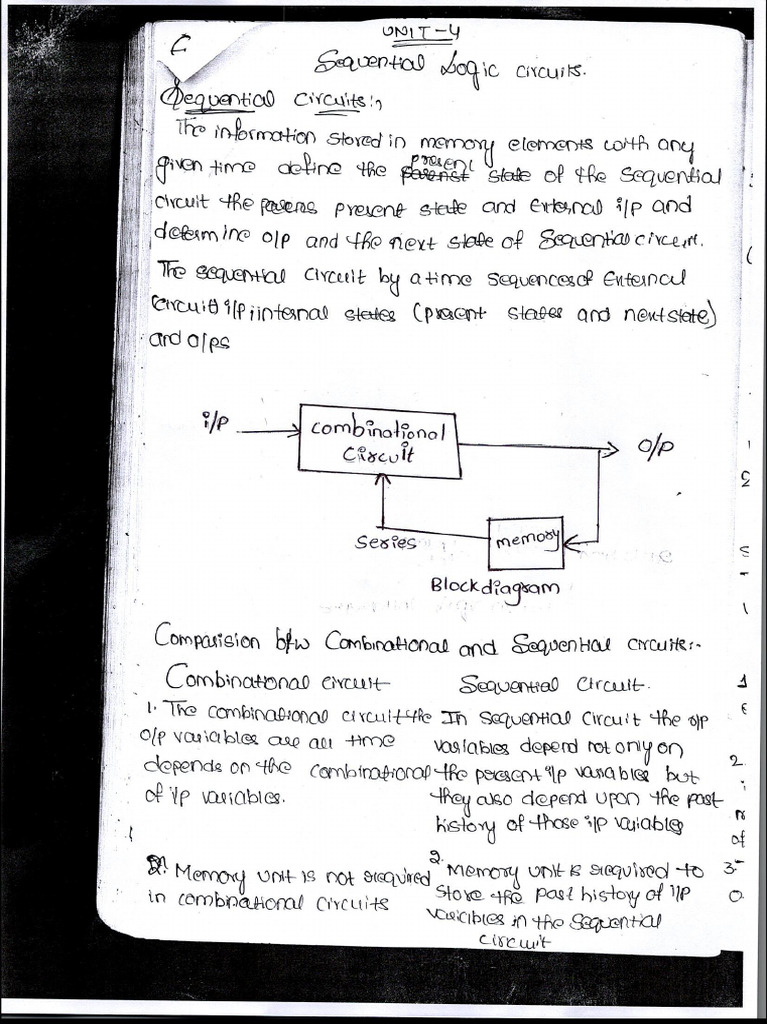 UNIT-4
Sequential Logic circuits.
Sequential circuits:-
The information stored in memory elements with any
given time define the present state of the sequential
circuit the present state and External i/p and
determine o/p and the next state of Sequential circuit.
The sequential circuit by a time sequences of External
circuit i/p internal states (present states and next state)
and o/ps
i/p
Combinational
Circuit
o/p
Series
memory
Block diagram
Comparision b/w Combinational and Sequential circuits:-
Combinational circuit
Sequential Circuit.
1. The combinational circuit the
o/p variables are all time
depends on the combinational
of i/p variables.
In sequential circuit the o/p
variables depend not only on
the present i/p variables but
they also depend upon the past
history of those i/p variables
2. Memory unit is not required
in combinational circuits
2. Memory unit is required to
store the past history of i/p
variables in the sequential
circuit